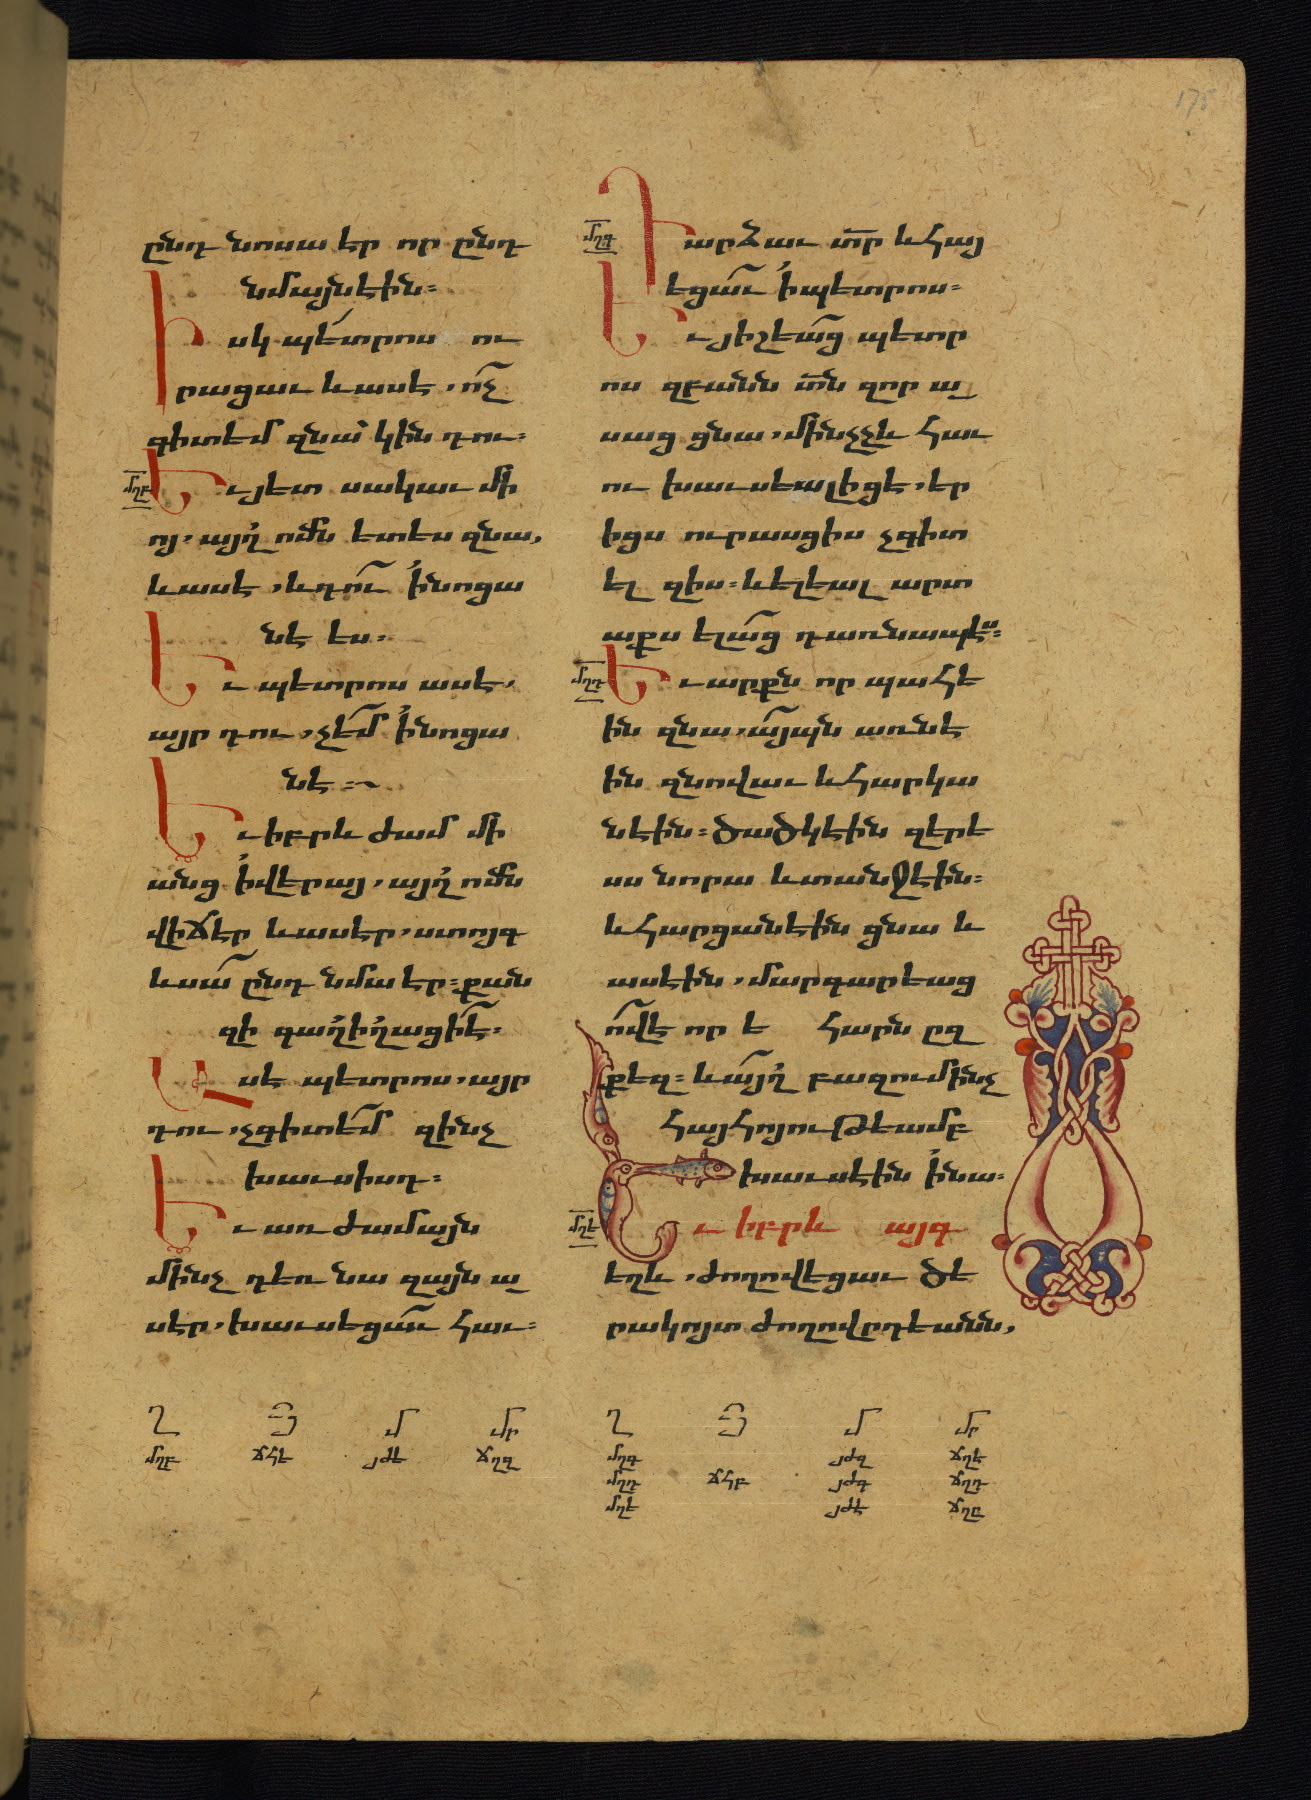 175
ընդ նոսա եր որ ընդ
նմայնէին:
Իսկ պետրոս ու
րացաւ և ասէ, ո՛չ
գիտեմ զնա՝ կին դու:
մղբ
Եւ յետ սակաւ մի
ոյ, այլ ոմն ետես զնա,
և ասէ, և դու ի նոցա
նէ ես,
Եւ պետրոս ասէ,
այր դու, չեմ ի նոցա
նէ:~
Եւ իբրև ժամ մի
անց ի վերայ, այլ ոմն
վիճէր և ասէր, ստոյգ
և սա ընդ նմա եր: քան
զի գաղիղացի է:
Ասէ պետրոս, այր
դու, չգիտեմ զինչ
խաւսիսդ:
Եւ առ ժամայն
մինչ դեռ նա զայն ա
սէր, խաւսեցաւ հաւ:
մղգ
Դարձաւ տր և հայ
եցաւ ի պետրոս:
Եւ յիշեաց պետր
ոս զբանն տն զոր ա
սաց ցնա, մինչչև հաւ
ու խաւսեալ իցէ, եր
իցս ուրասցիս չգիտ
ել զիս: և ելեալ արտ
աքս ելաց դառնապէս:
մղդ
Եւ արքն որ պահէ
ին զնա, այպն առնէ
ին զնովաւ և հարկա
նէին: ծածկէին զերե
սս նորա և տանջէին:
և հարցանէին ցնա և
ասէին, մարգարեաց
ո՛վ է որ եհար ըզ
քեզ: և այլ բազում ինչ
հայհոյութեամբ
խաւսէին ի նա:
մղե
Եւ իբրև այգ
եղև, ժողովեցաւ ծե
րակոյտ ժողովրդեանն,
Ղ Յ Մ Մր
մղբ ճհե յժե ճղզ
Ղ Յ Մ Մր
մղգ յժզ ճղէ
մղդ ճհբ յժգ ճղդ
մղե յժէ ճղը